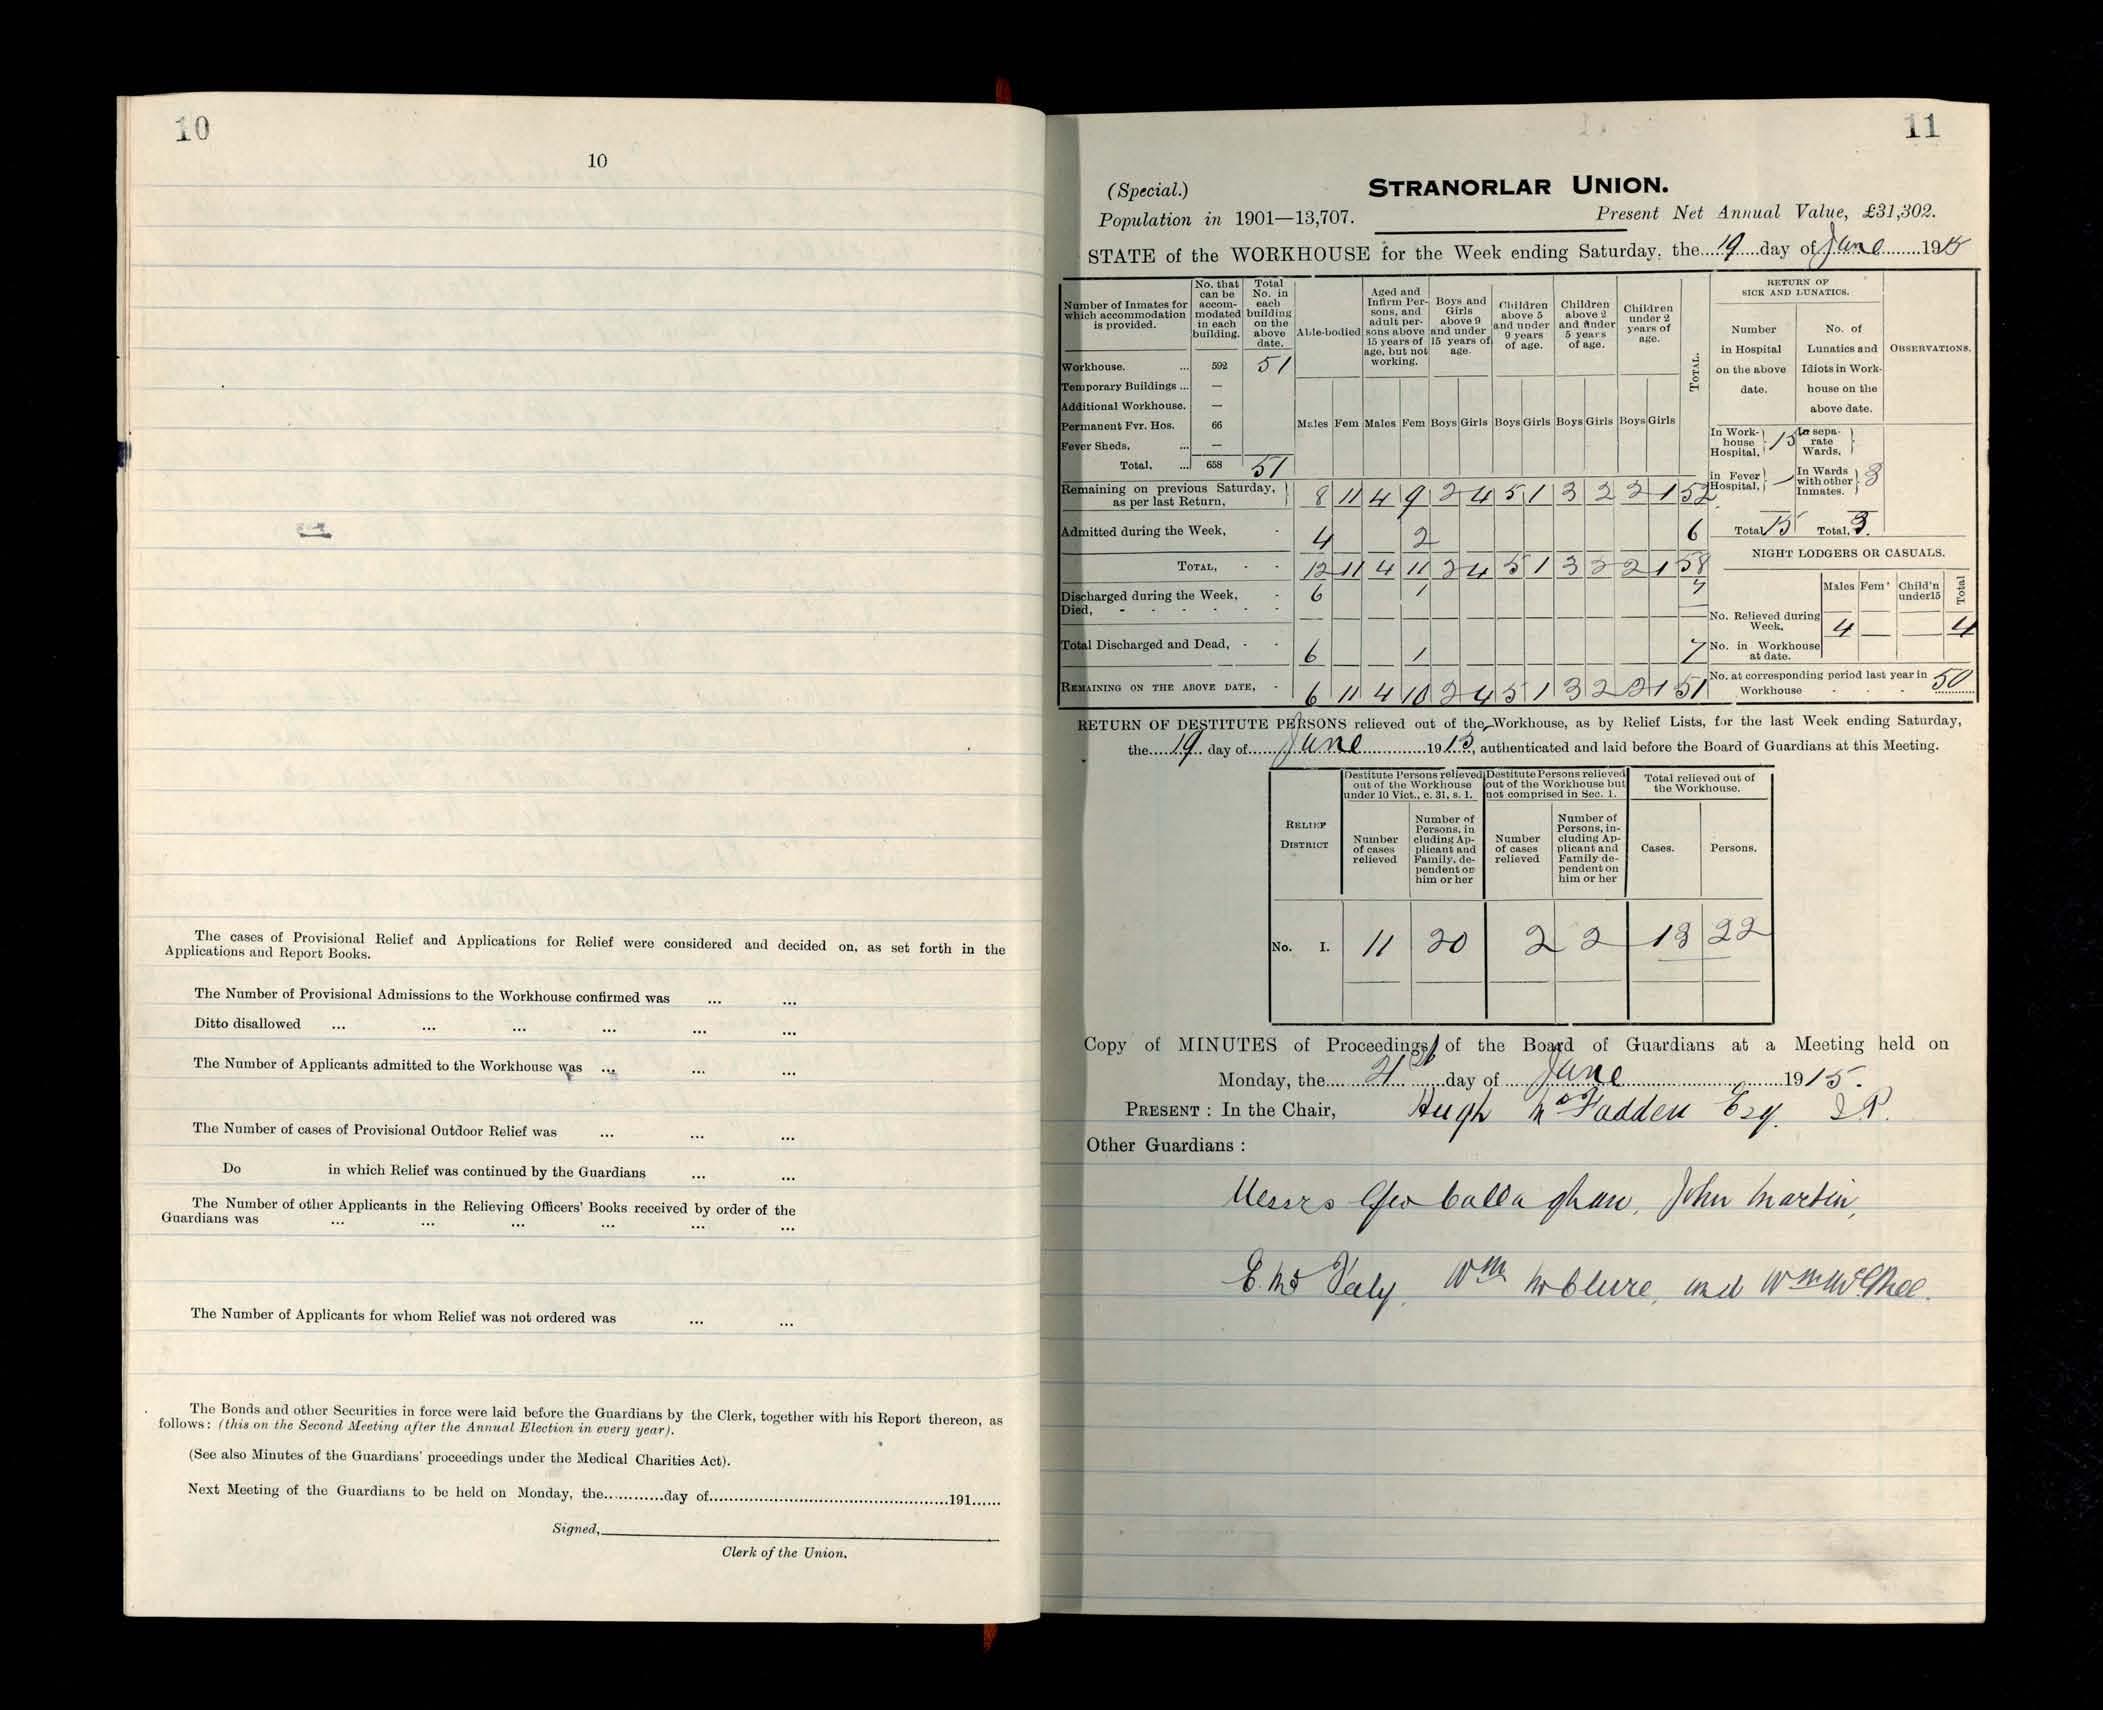 10
10
The cases of Provisional Relief and Applications for Relief were considered and decided on, as set forth in the
Applications and Report Books.
The Number of Provisional Admissions to the Workhouse confirmed was ... ...
Ditto disallowed ... ... ... ... ... ...
The Number of Applicants admitted to the Workhouse was ... ... ...
The Number of cases of Provisional Outdoor Relief was ... ... ...
Do in which Relief was continued by the Guardians ... ...
The Number of other Applicants in the Relieving Officers' Books received by order of the
Guardians was ... ... ... ... ... ...
The Number of Applicants for whom Relief was not ordered was ... ...
The Bonds and other Securities in force were laid before the Guardians by the Clerk, together with his Report thereon, as
follows: (this on the Second Meeting after the Annual Election in every year).
(See also Minutes of the Guardians' proceedings under the Medical Charities Act).
Next Meeting of the Guardians to be held on Monday, the............day of................................................191......
Signed,
Clerk of the Union.
11
(Special.) STRANORLAR UNION.
Population in 1901—13,707. Present Net Annual Value, £31,302.
STATE of the WORKHOUSE for the Week ending Saturday, the 19 day of June 1915
Number of Inmates for which accommodation is provided. No. that can be accommodated in each building. Total No. in each building on the above date.
Able-bodied Aged and Infirm Persons, and adult persons above 15 years of age, but not working. Boys and Girls above 9 and under 15 years of age. Children above 5 and under 9 years of age. Children above 2 and under 5 years of age. Children under 2 years of age. TOTAL.
RETURN OF SICK AND LUNATICS.
Number in Hospital on the above date. No. of Lunatics and Idiots in Workhouse on the above date. OBSERVATIONS.
Workhouse. ... 592 51
Temporary Buildings ... —
Additional Workhouse. —
Permanent Fvr. Hos. 66
Fever Sheds, ... —
Total, ... 658 51
Males Fem Males Fem Boys Girls Boys Girls Boys Girls Boys Girls
In Workhouse Hospital, 15 In separate Wards,
in Fever Hospital, — In Wards with other Inmates. 3
Total 15 Total, 3.
Remaining on previous Saturday, as per last Return, 8 11 4 9 2 4 5 1 3 2 2 1 52
Admitted during the Week, - 4 2 6
TOTAL, - - 12 11 4 11 2 4 5 1 3 2 2 1 58
Discharged during the Week, - 6 1 7
Died, - - - - - -
Total Discharged and Dead, - - 6 1 7
REMAINING ON THE ABOVE DATE, - 6 11 4 10 2 4 5 1 3 2 2 1 51
NIGHT LODGERS OR CASUALS.
Males Fem' Child'n under15 Total
No. Relieved during Week, 4 — — 4
No. in Workhouse at date.
No. at corresponding period last year in Workhouse - - - 50
RETURN OF DESTITUTE PERSONS relieved out of the Workhouse, as by Relief Lists, for the last Week ending Saturday,
the 19 day of June 1915, authenticated and laid before the Board of Guardians at this Meeting.
RELIEF DISTRICT
Destitute Persons relieved out of the Workhouse under 10 Vict., c. 31, s. 1. Destitute Persons relieved out of the Workhouse but not comprised in Sec. 1. Total relieved out of the Workhouse.
Number of cases relieved Number of Persons, in cluding Applicant and Family, dependent on him or her Number of cases relieved Number of Persons, including Applicant and Family dependent on him or her Cases. Persons.
No. I. 11 20 2 2 13 22
Copy of MINUTES of Proceedings of the Board of Guardians at a Meeting held on
Monday, the 21st day of June 1915.
PRESENT : In the Chair, Hugh McFadden Esq. J.P.
Other Guardians :
Messrs Geo Callaghan, John Martin,
E. McFeely, Wm McClure, and Wm McGhee.